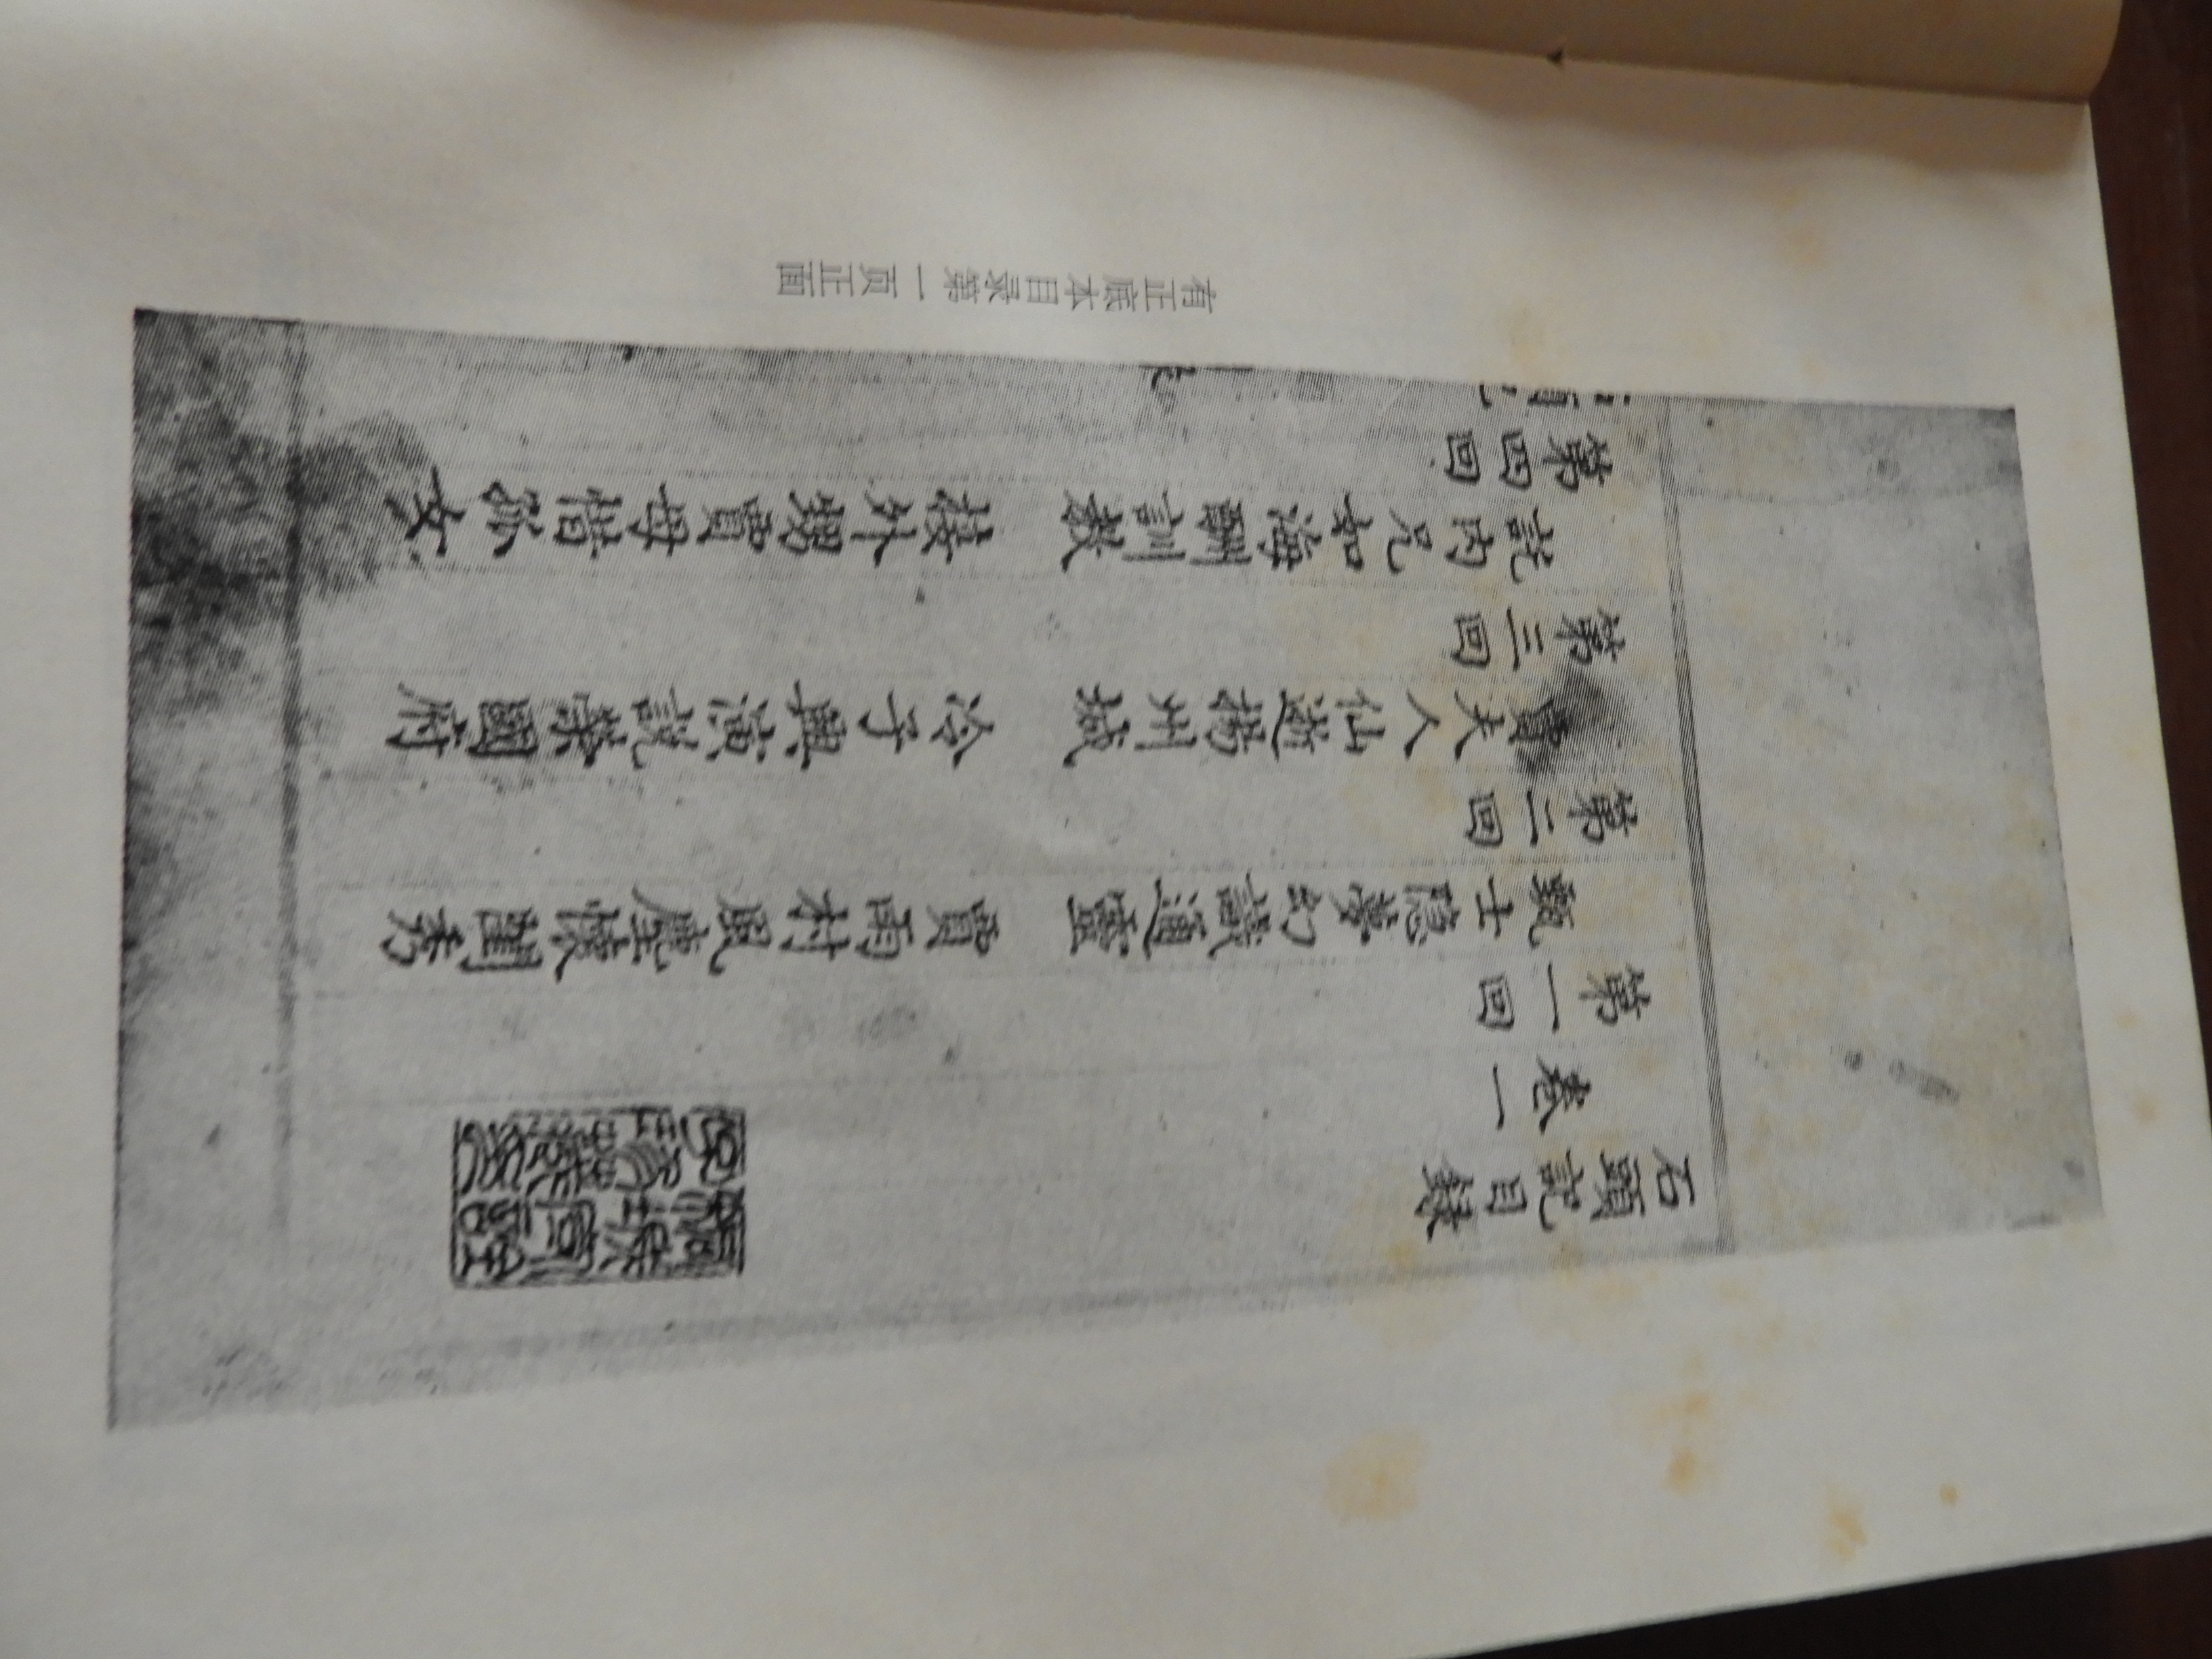 石頭記目録
卷一
第一回
甄士隐夢幻識通靈 賈雨村風塵懷閨秀
第二回
賈夫人仙逝揚州城 冷子興演説榮國府
第三回
託内兄如海酬訓教 接外甥賈母惜孤女
第四回
桐城守詮
子珍藏印
有正底本目录第一页正面